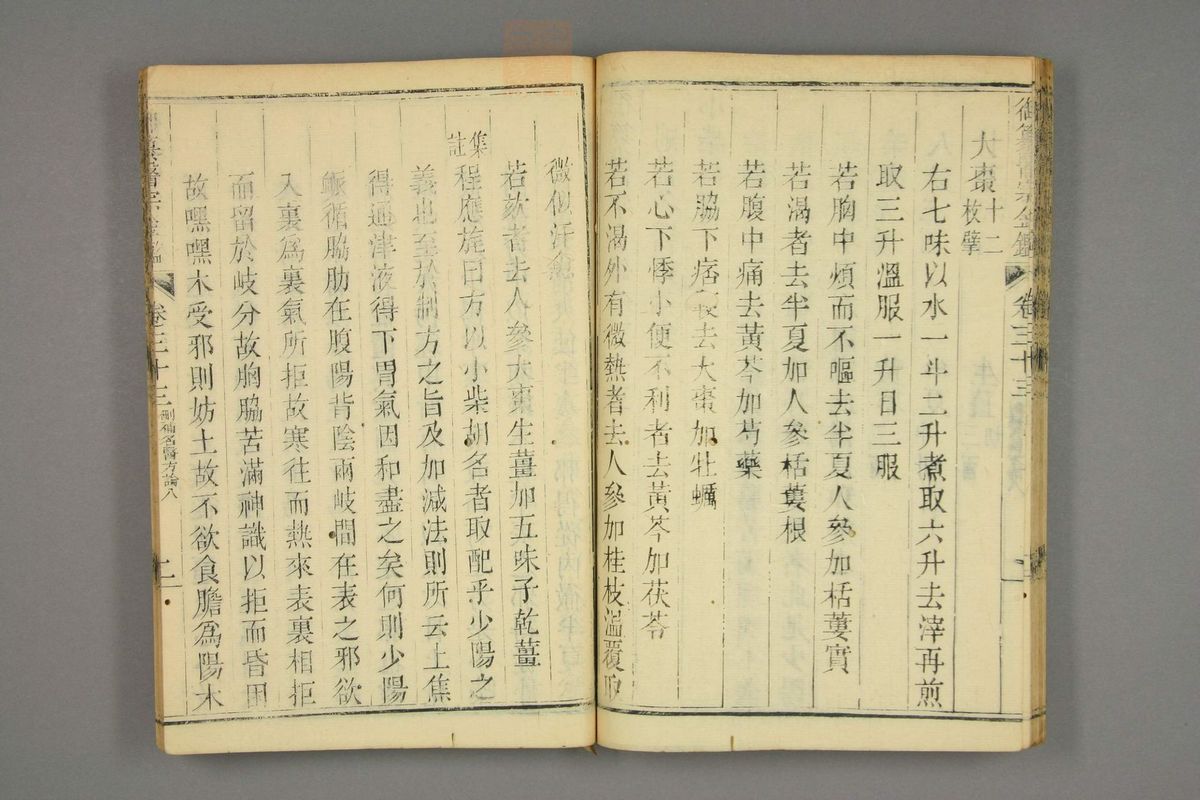 御纂醫宗金鑑 卷三十三 二
大棗十二枚擘
右七味以水一斗二升煮取六升去滓再煎
取三升溫服一升日三服
若胸中煩而不嘔去半夏人參加栝蔞實
若渴者去半夏加人參栝蔞根
若腹中痛去黃芩加芍藥
若脇下痞去大棗加牡蠣
若心下悸小便不利者去黃芩加茯苓
若不渴外有微熱者去人參加桂枝溫覆取
微似汗
若欬者去人參大棗生薑加五味子乾薑
集註程應旄曰方以小柴胡名者取配乎少陽之
義也至於制方之旨及加減法則所云上焦
得通津液得下胃氣因和盡之矣何則少陽
脈循脇肋在腹陽背陰兩岐間在表之邪欲
入裏爲裏氣所拒故寒往而熱來表裏相拒
而留於岐分故胸脇苦滿神識以拒而昏困
故嘿嘿木受邪則妨土故不欲食膽爲陽木
卷三十三 刪補名醫方論八 二